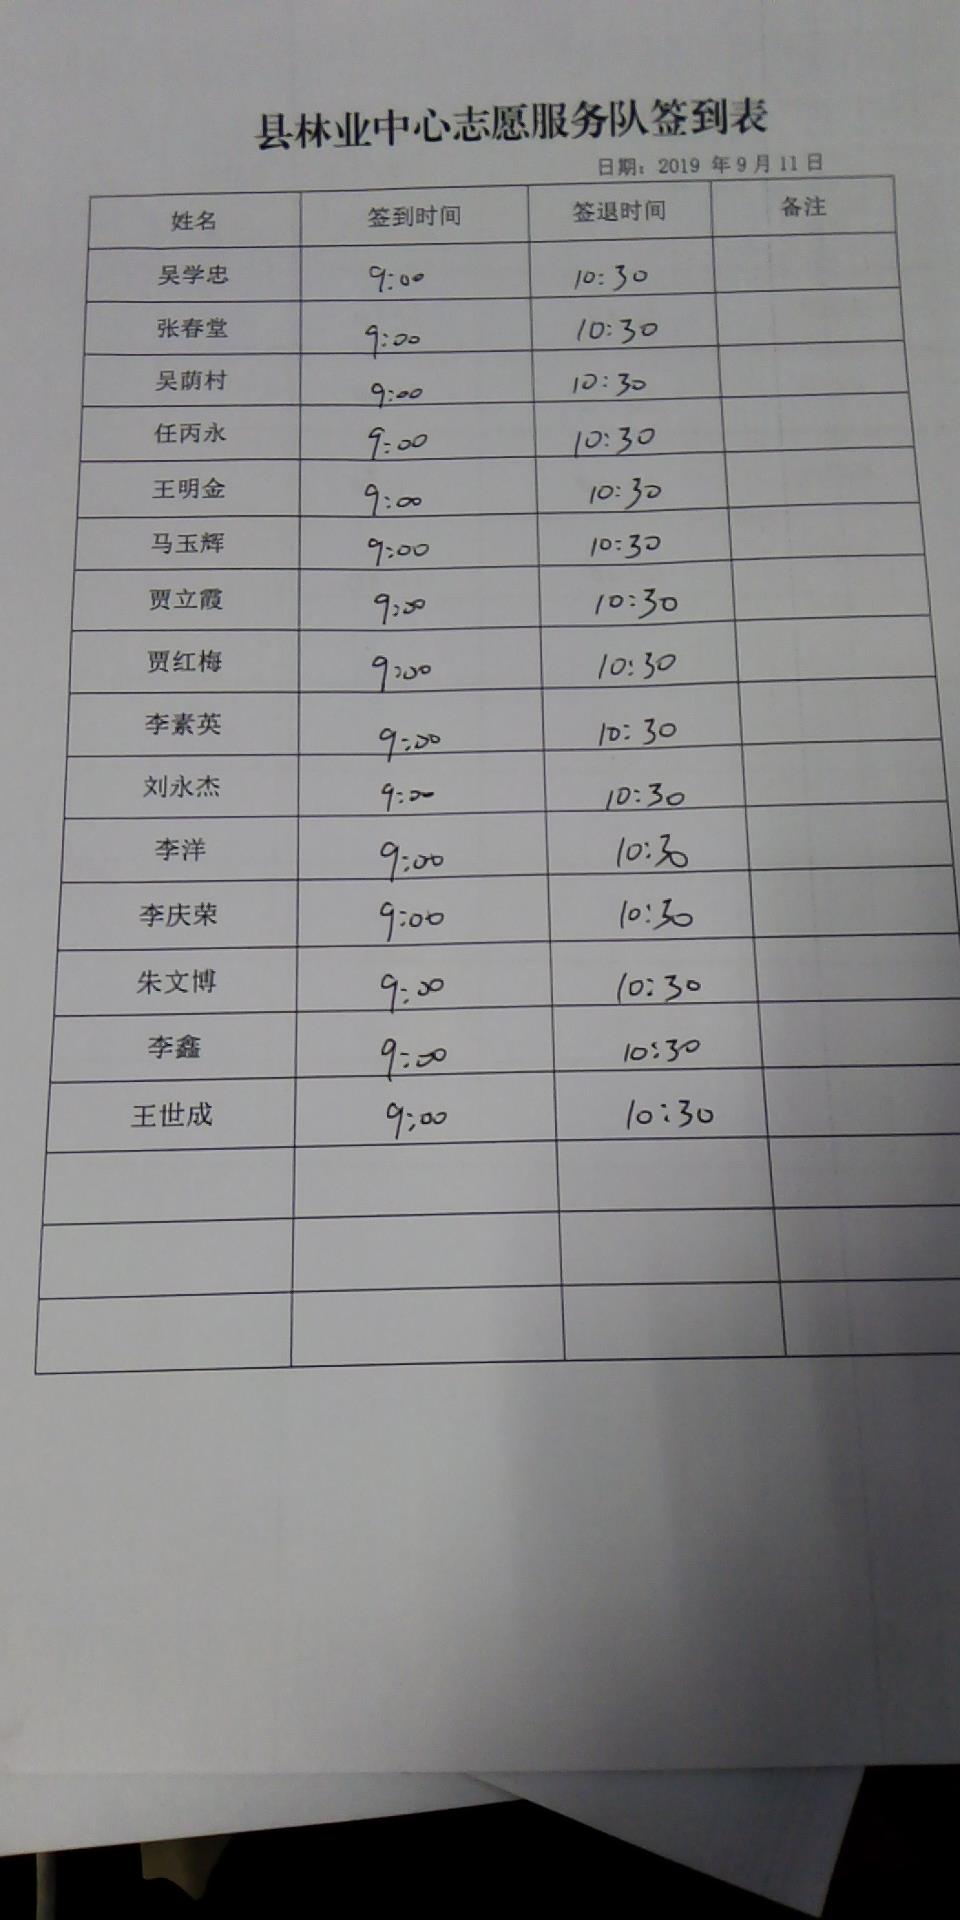 县林业中心志愿服务队签到表
日期：2019 年 9 月 11 日
姓名 签到时间 签退时间 备注
吴学忠 9:00 10:30
张春堂 9:00 10:30
吴荫村 9:00 10:30
任丙永 9:00 10:30
王明金 9:00 10:30
马玉辉 9:00 10:30
贾立霞 9:00 10:30
贾红梅 9:00 10:30
李素英 9:00 10:30
刘永杰 9:00 10:30
李洋 9:00 10:30
李庆荣 9:00 10:30
朱文博 9:00 10:30
李鑫 9:00 10:30
王世成 9:00 10:30